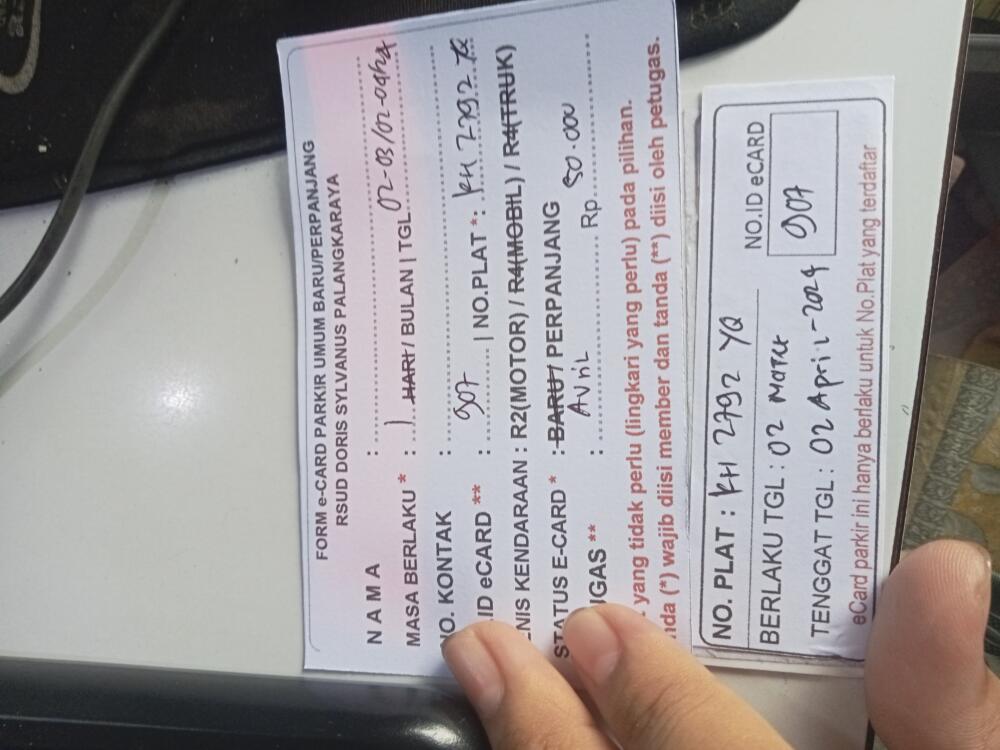 FORM e-CARD PARKIR UMUM BARU/PERPANJANG
RSUD DORIS SYLVANUS PALANGKARAYA
N A M A : ..........
MASA BERLAKU * : 1 HARI / BULAN | TGL 02-03/02-04
NO. KONTAK : ..........
ID eCARD ** : 907 | NO.PLAT * : KH 2792 YQ
ENIS KENDARAAN : R2(MOTOR) / R4(MOBIL) / R4(TRUK)
STATUS E-CARD * : BARU / PERPANJANG
IGAS ** : Avril Rp. 50.000
yang tidak perlu (lingkari yang perlu) pada pilihan.
nda (*) wajib diisi member dan tanda (**) diisi oleh petugas.
NO. PLAT : KH 2792 YQ
NO.ID eCARD
BERLAKU TGL : 02 Maret
907
TENGGAT TGL : 02 April-2024
eCard parkir ini hanya berlaku untuk No.Plat yang terdaftar